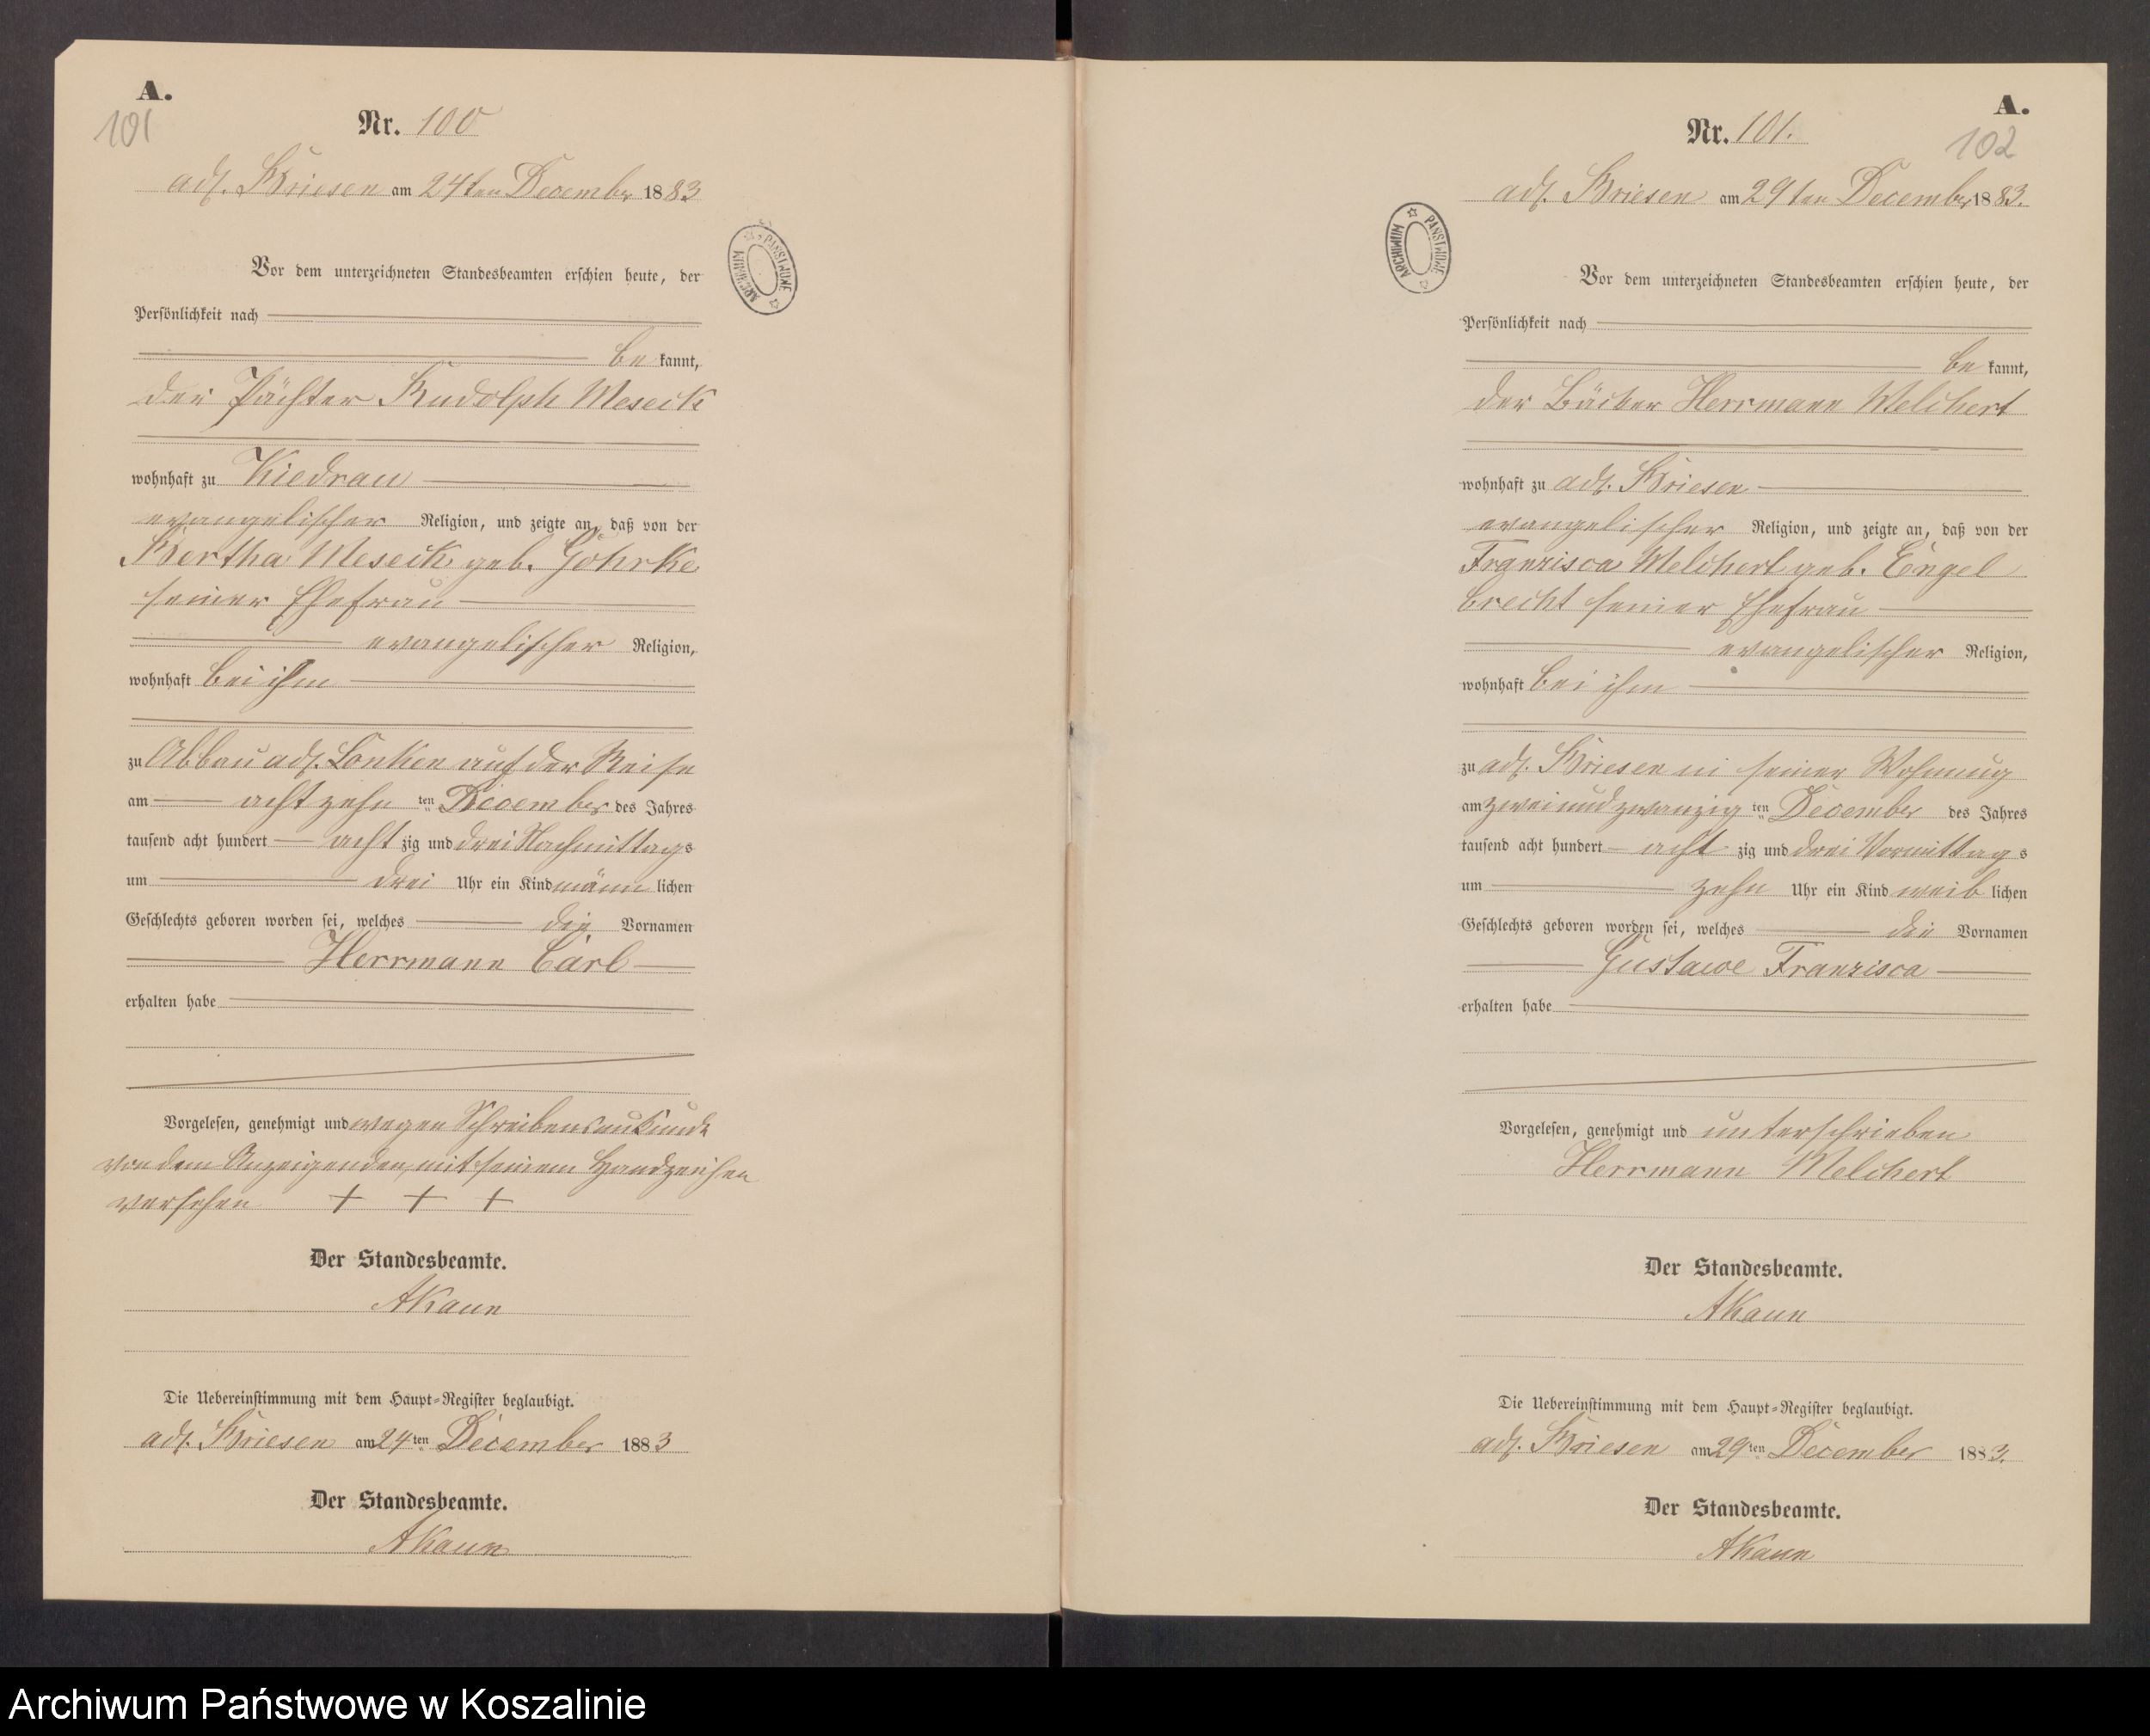 A.
101
Nr. 100
adl. Briesen am 24ten December 1883
ARCHIWUM PAŃSTWOWE
Vor dem unterzeichneten Standesbeamten erschien heute, der
Persönlichkeit nach
be kannt,
der Pächter Rudolph Meseck
wohnhaft zu Kiedrau
evangelischer Religion, und zeigte an, daß von der
Bertha Meseck geb. Gohrke
seiner Ehefrau
evangelischer Religion,
wohnhaft bei ihm
zu Abbau adl. Lonken auf der Reise
am achtzehn ten December des Jahres
tausend acht hundert acht zig und drei Nachmittags
um drei Uhr ein Kind männ lichen
Geschlechts geboren worden sei, welches die Vornamen
Herrmann Carl
erhalten habe
Vorgelesen, genehmigt und wegen Schreibensunkunde
von dem Anzeigenden mit seinem Handzeichen
versehen + + +
Der Standesbeamte.
AKaun
Die Uebereinstimmung mit dem Haupt-Register beglaubigt.
adl. Briesen am 24ten December 1883
Der Standesbeamte.
AKaun
A.
102
Nr. 101.
adl. Briesen am 29ten December 1883.
ARCHIWUM PAŃSTWOWE
Vor dem unterzeichneten Standesbeamten erschien heute, der
Persönlichkeit nach
be kannt,
der Bäcker Herrmann Melchert
wohnhaft zu adl. Briesen
evangelischer Religion, und zeigte an, daß von der
Franzisca Melchert geb. Engel
brecht seiner Ehefrau
evangelischer Religion,
wohnhaft bei ihm
zu adl. Briesen in seiner Wohnung
am zweiundzwanzig ten December des Jahres
tausend acht hundert acht zig und drei Vormittags
um zehn Uhr ein Kind weib lichen
Geschlechts geboren worden sei, welches die Vornamen
Gustawe Franzisca
erhalten habe
Vorgelesen, genehmigt und unterschrieben
Herrmann Melchert
Der Standesbeamte.
AKaun
Die Uebereinstimmung mit dem Haupt-Register beglaubigt.
adl. Briesen am 29ten December 1883.
Der Standesbeamte.
AKaun
Archiwum Państwowe w Koszalinie